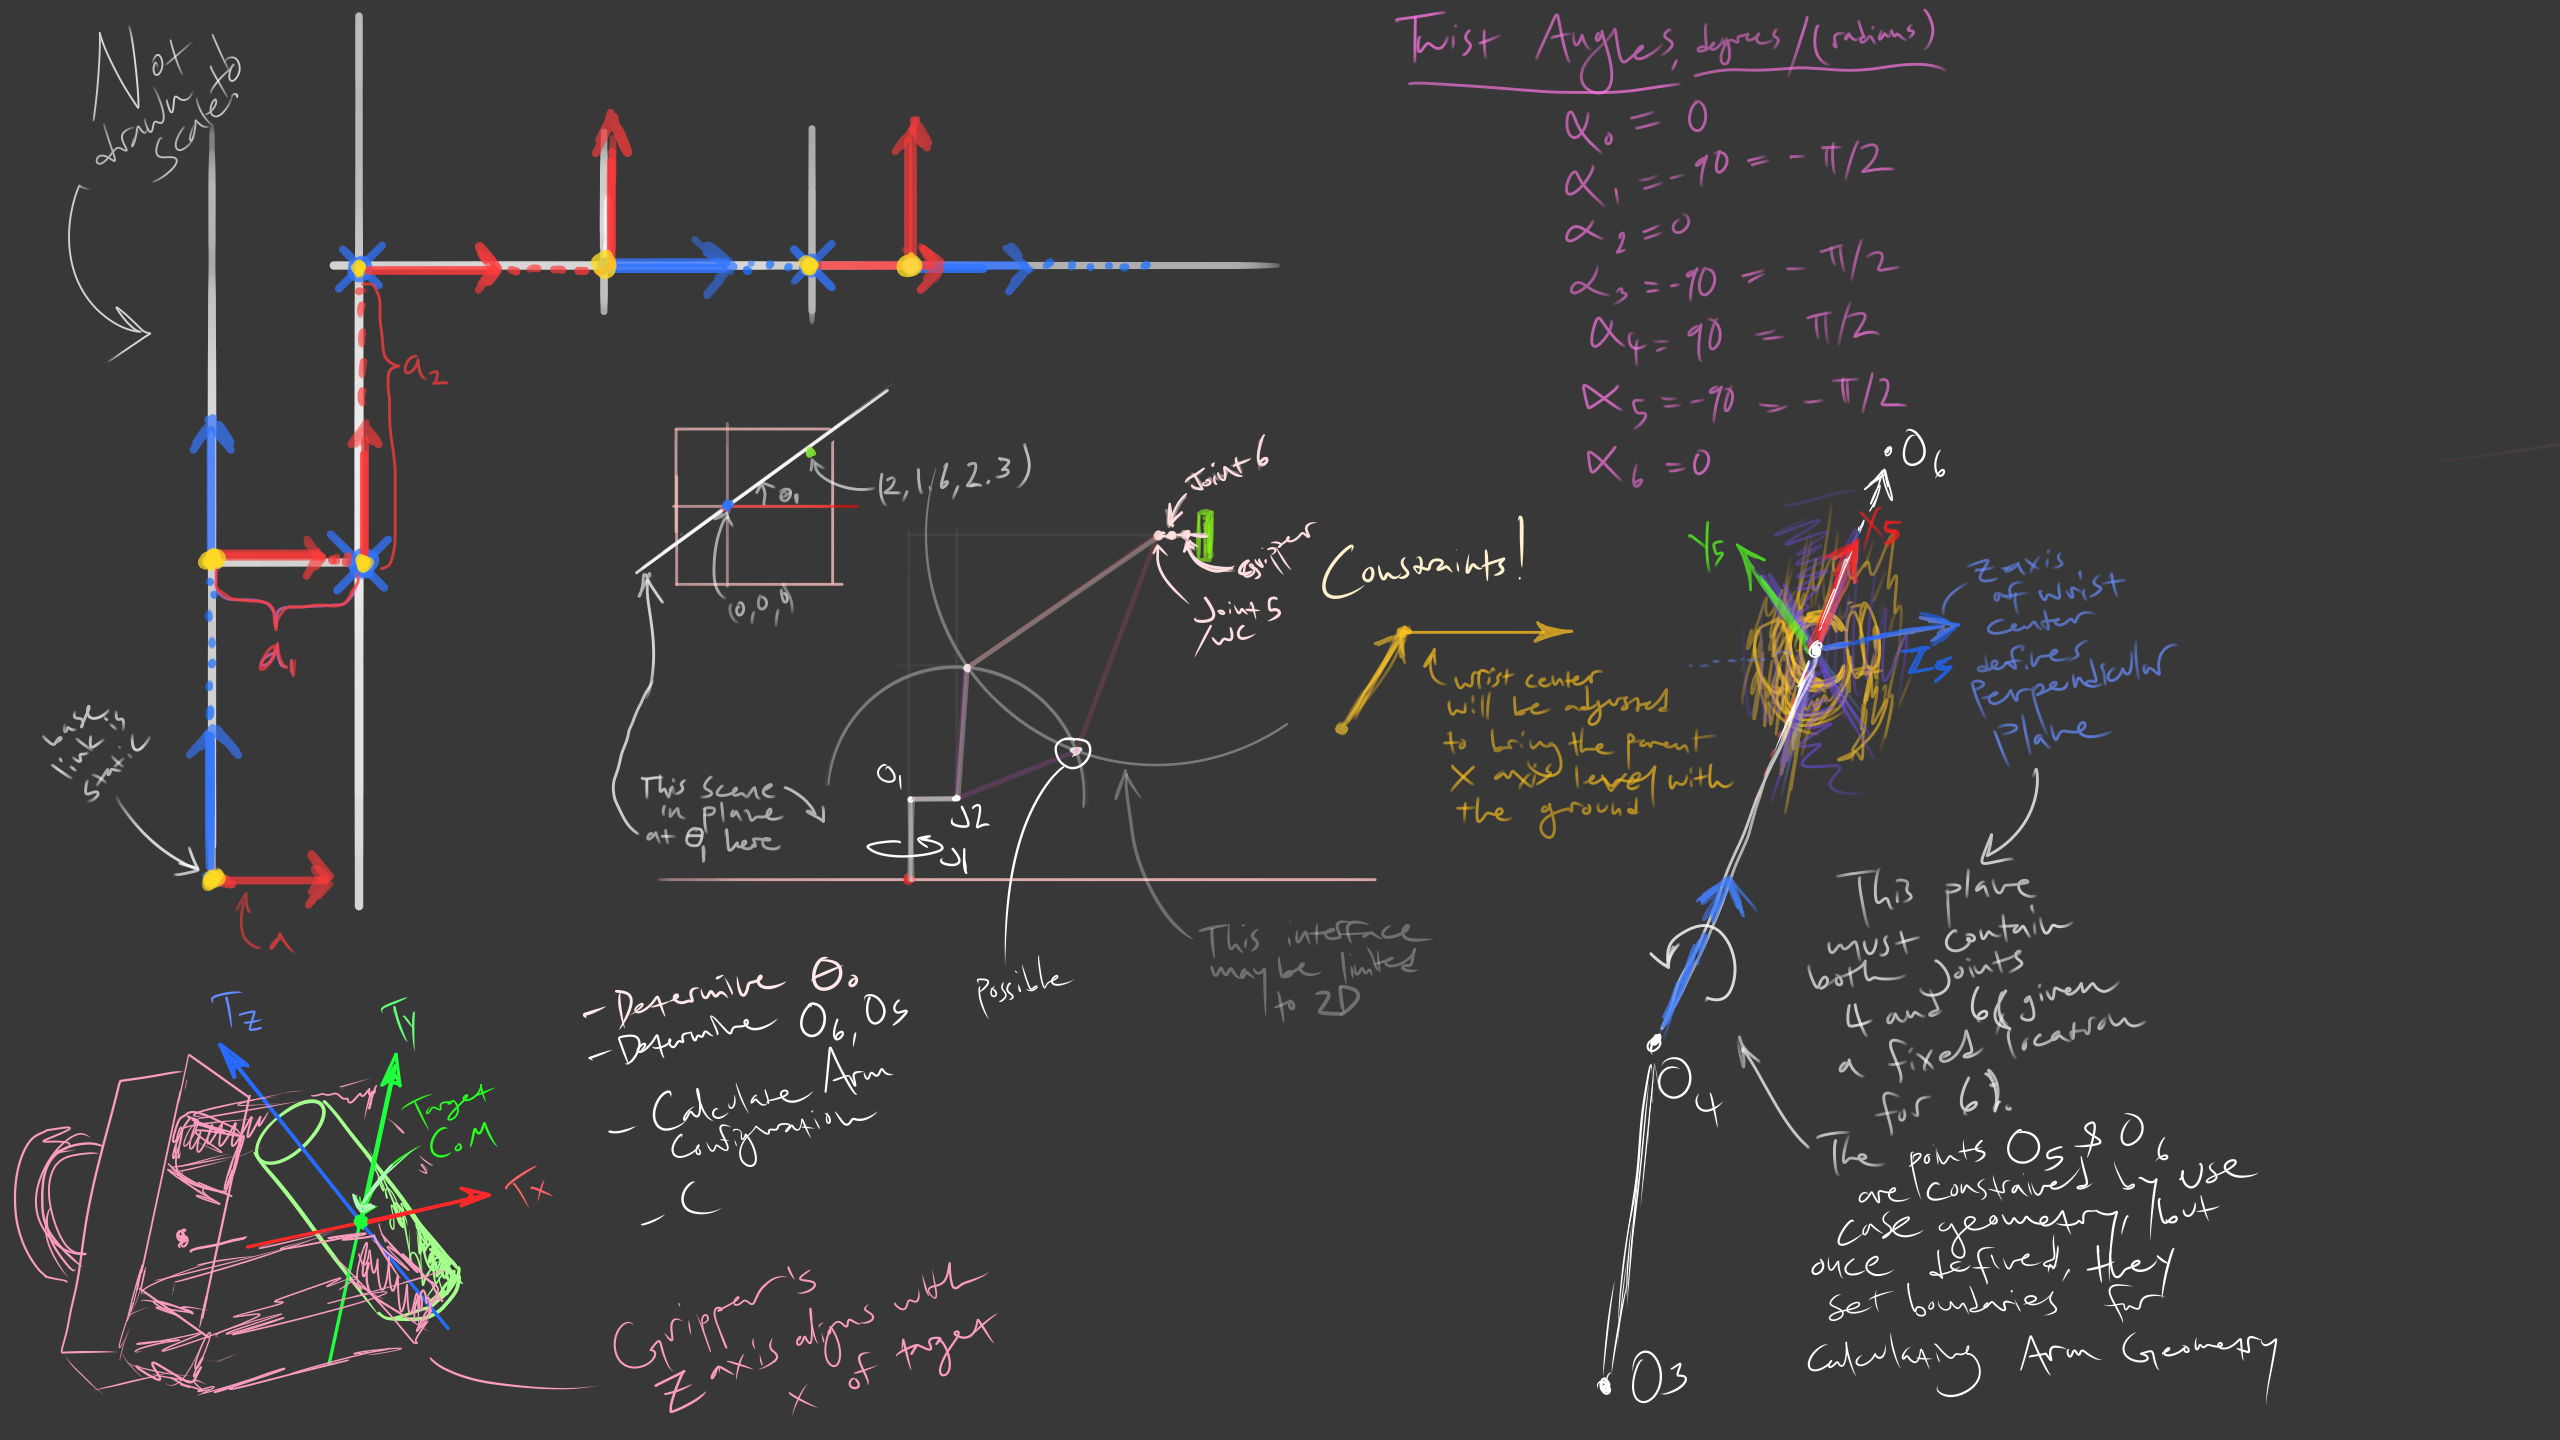 Not
drawn to
scale
a2
a1
base
link is
static
Twist Angles, degrees/(radians)
α0 = 0
α1 = -90 = -π/2
α2 = 0
α3 = -90 = -π/2
α4 = 90 = π/2
α5 = -90 = -π/2
α6 = 0
θ1
(2, 1.6, 2.3)
(0,0,0)
Joint 6
Gripper
Joint 5
/WC
This scene
in plane
at θ1 here
O1
J2
J1
Possible
This interface
may be limited
to 2D
Constraints!
wrist center
will be adjusted
to bring the parent
X axis level with
the ground
O6
Y5
X5
Z5
Z axis
of wrist
center
defines
Perpendicular
Plane
This plane
must contain
both Joints
4 and 6 (given
a fixed location
for 6).
The points O5 & O6
are constrained by use
case geometry, but
once defined, they
set boundaries for
Calculating Arm Geometry
O4
O3
- Determine θ0
- Determine O6, O5
- Calculate Arm
Configuration
- C
Tz
Ty
Target
CoM
Tx
Gripper's
Z axis aligns with
x of target